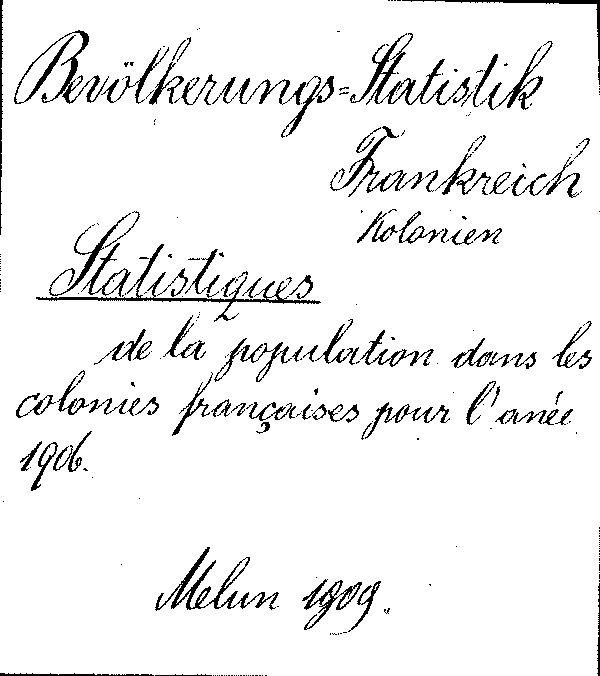 Bevölkerungs=Statistik
Frankreich
Kolonien
Statistiques
de la population dans les
colonies françaises pour l'anée
1906.
Melun 1909.